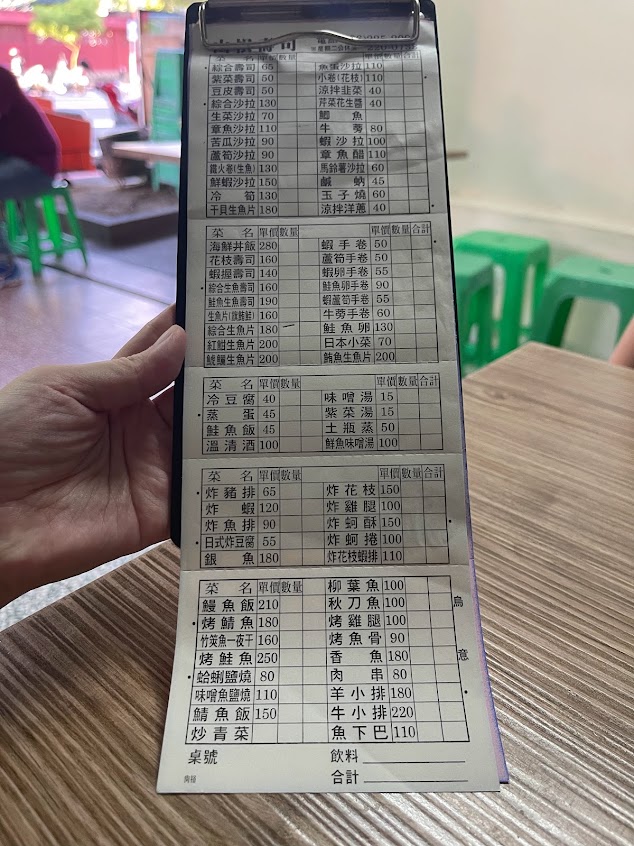 菜名 單價 數量 單價 數量 合計
綜合壽司 65 魚蛋沙拉 110
紫菜壽司 50 小卷(花枝) 110
豆皮壽司 50 涼拌韭菜 40
綜合沙拉 130 芹菜花生醬 40
生菜沙拉 70 鯽魚
章魚沙拉 110 牛蒡 80
苦瓜沙拉 90 蝦沙拉 100
蘆筍沙拉 90 章魚醋 110
鐵火卷(生魚) 130 馬鈴薯沙拉 60
鮮蝦沙拉 150 鹹蚋 45
冷筍 130 玉子燒 60
干貝生魚片 180 涼拌洋蔥 40
菜名 單價 數量 單價 數量 合計
海鮮丼飯 280 蝦手卷 50
花枝壽司 160 蘆筍手卷 50
蝦握壽司 140 蝦卵手卷 55
綜合生魚壽司 160 鮭魚卵手卷 90
鮭魚生魚壽司 190 蝦蘆筍手卷 55
生魚片(旗鮪鮭) 160 牛蒡手卷 60
綜合生魚片 180 鮭魚卵 130
紅魽生魚片 200 日本小菜 70
生魚片 200 鮪魚生魚片 200
菜名 單價 數量 單價 數量 合計
冷豆腐 40 味噌湯 15
蒸蛋 45 紫菜湯 15
鮭魚飯 45 土瓶蒸 50
溫清酒 100 鮮魚味噌湯 100
菜名 單價 數量 單價 數量 合計
炸豬排 65 炸花枝 150
炸蝦 120 炸雞腿 100
炸魚排 90 炸蚵酥 150
日式炸豆腐 55 炸蚵捲 100
銀魚 180 炸花枝蝦排 110
菜名 單價 數量 柳葉魚 100
鰻魚飯 210 秋刀魚 100
烤鯖魚 180 烤雞腿 100
竹筴魚一夜干 160 烤魚骨 90
烤鮭魚 250 香魚 180
蛤蜊鹽燒 80 肉串 80
味噌魚鹽燒 110 羊小排 180
鯖魚飯 150 牛小排 220
炒青菜 魚下巴 110
桌號 飲料
合計